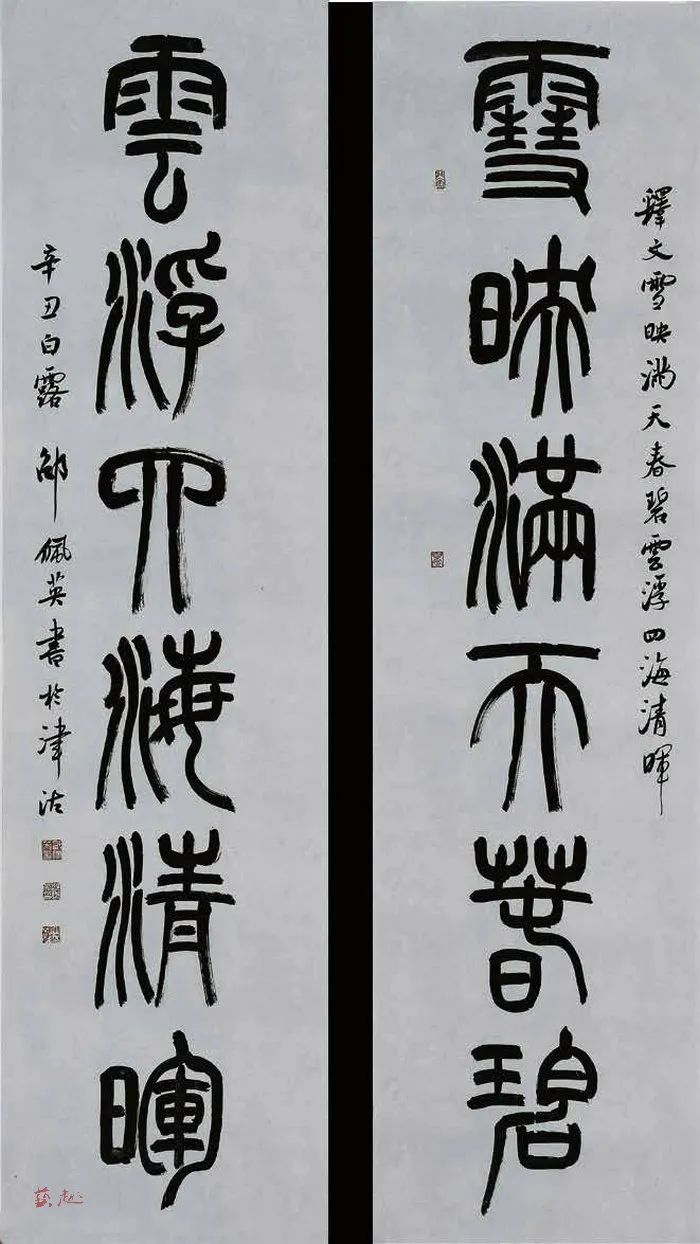 釋文雪映满天春碧雲浮四海清暉
雪映滿天春碧
雲浮四海清暉
辛丑白露 邵佩英書於津沽
藝趣